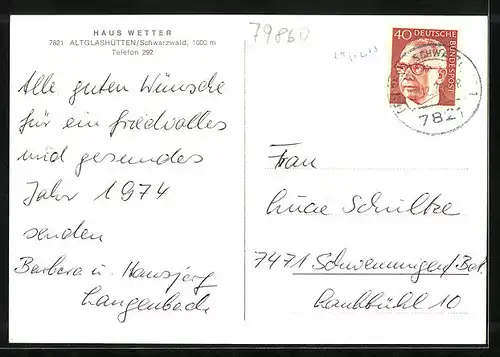 HAUS WETTER
7821 ALTGLASHÜTTEN/Schwarzwald, 1000 m
Telefon 292
Alle guten Wünsche
für ein friedvolles
und gesundes
Jahr 1974
senden
Barbara u. Hansjörg
Langenbach
79860
40 DEUTSCHE BUNDESPOST
7821
Frau
Schultze
7471 Schwenningen/
10